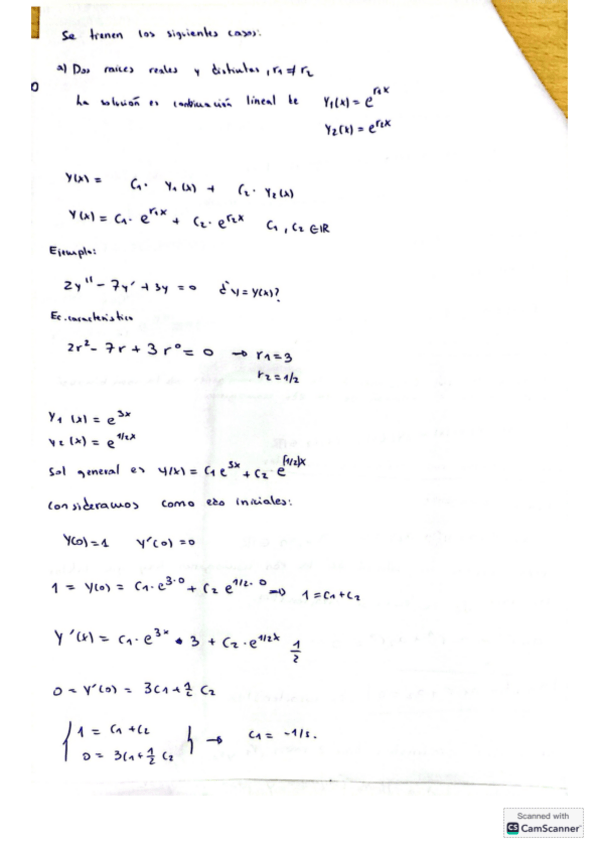 Se tienen los siguientes casos:
a) Dos raices reales y distintas, r₁ ≠ r₂
La solución es combinación lineal de y₁(x) = e^{r₁x}
y₂(x) = e^{r₂x}
y(x) = C₁· y₁(x) + C₂· y₂(x)
y(x) = C₁· e^{r₁x} + C₂· e^{r₂x} C₁, C₂ ∈ ℝ
Ejemplo:
2y'' - 7y' + 3y = 0 ¿y = y(x)?
Ec. característica
2r² - 7r + 3r⁰ = 0 → r₁ = 3
r₂ = 1/2
y₁(x) = e^{3x}
y₂(x) = e^{1/2x}
Sol general es y(x) = C₁e^{3x} + C₂ e^{(1/2)x}
Consideramos como iniciales:
y(0) = 1 y'(0) = 0
1 = y(0) = C₁· e^{3·0} + C₂ e^{1/2·0} ⇒ 1 = C₁ + C₂
y'(x) = C₁· e^{3x} · 3 + C₂· e^{1/2x} 1/2
0 = y'(0) = 3C₁ + 1/2 C₂
{ 1 = C₁ + C₂
0 = 3C₁ + 1/2 C₂ } → C₁ = -1/5.
Scanned with
CS CamScanner